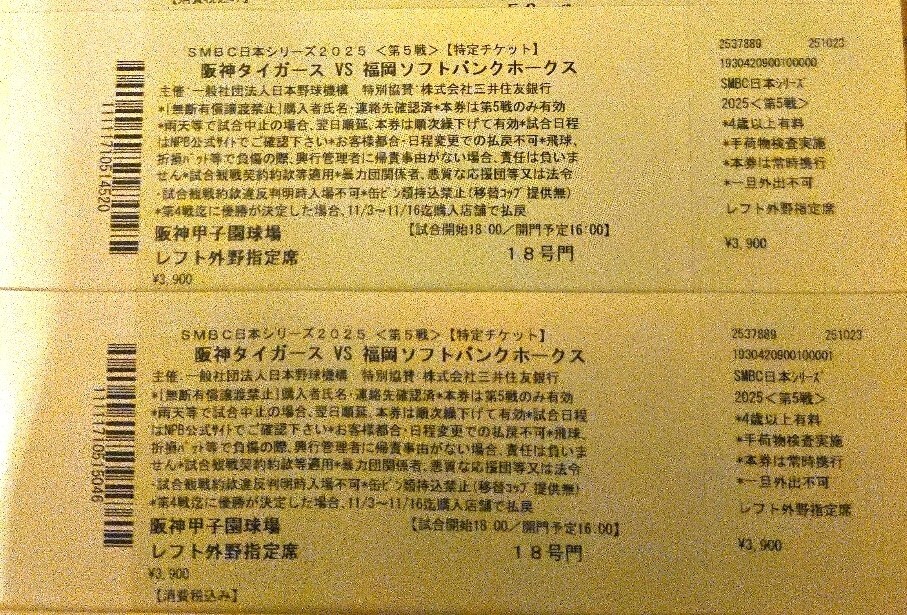 SMBC日本シリーズ2025 <第5戦>【特定チケット】
阪神タイガース VS 福岡ソフトバンクホークス
主催:一般社団法人日本野球機構 特別協賛:株式会社三井住友銀行
*[無断有償譲渡禁止]購入者氏名・連絡先確認済*本券は第5戦のみ有効
*雨天等で試合中止の場合、翌日順延、本券は順次繰下げて有効*試合日程
はNPB公式サイトでご確認下さい*お客様都合・日程変更での払戻不可*飛球、
折損バット等で負傷の際、興行管理者に帰責事由がない場合、責任は負いま
せん*試合観戦契約約款等適用*暴力団関係者、悪質な応援団等又は法令
・試合観戦約款違反判明時入場不可*缶ビン類持込禁止(移替コップ提供無)
*第4戦迄に優勝が決定した場合、11/3~11/16迄購入店舗で払戻
阪神甲子園球場 【試合開始18:00/開門予定16:00】
レフト外野指定席 18号門
¥3,900
1111710514520
2537889 251023
1930420900100000
SMBC日本シリーズ
2025<第5戦>
*4歳以上有料
*手荷物検査実施
*本券は常時携行
*一旦外出不可
レフト外野指定席
¥3,900
SMBC日本シリーズ2025 <第5戦>【特定チケット】
阪神タイガース VS 福岡ソフトバンクホークス
主催:一般社団法人日本野球機構 特別協賛:株式会社三井住友銀行
*[無断有償譲渡禁止]購入者氏名・連絡先確認済*本券は第5戦のみ有効
*雨天等で試合中止の場合、翌日順延、本券は順次繰下げて有効*試合日程
はNPB公式サイトでご確認下さい*お客様都合・日程変更での払戻不可*飛球、
折損バット等で負傷の際、興行管理者に帰責事由がない場合、責任は負いま
せん*試合観戦契約約款等適用*暴力団関係者、悪質な応援団等又は法令
・試合観戦約款違反判明時入場不可*缶ビン類持込禁止(移替コップ提供無)
*第4戦迄に優勝が決定した場合、11/3~11/16迄購入店舗で払戻
阪神甲子園球場 【試合開始18:00/開門予定16:00】
レフト外野指定席 18号門
¥3,900
【消費税込み】
1111710515046
2537889 251023
1930420900100001
SMBC日本シリーズ
2025<第5戦>
*4歳以上有料
*手荷物検査実施
*本券は常時携行
*一旦外出不可
レフト外野指定席
¥3,900